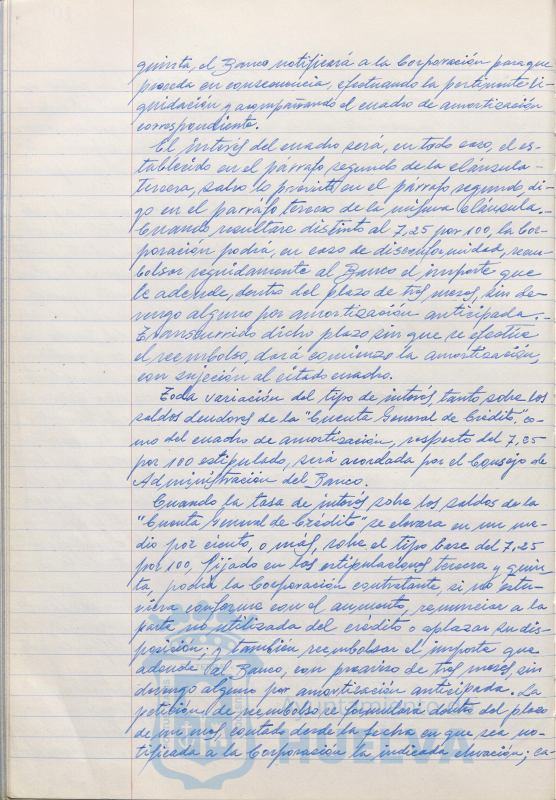 quinta, el Banco notificará a la Corporación para que
proceda en consecuencia, efectuando la pertinente li-
quidación y acompañando el cuadro de amortización
correspondiente.
El interés del cuadro será, en todo caso, el es-
tablecido en el párrafo segundo de la cláusula -
tercera, salvo lo previsto en el párrafo segundo, di-
go en el párrafo tercero de la misma cláusula. -
Cuando resultare distinto al 7,25 por 100, la Cor-
poración podrá, en caso de disconformidad, reem-
bolsar seguidamente al Banco el importe que
le adeude, dentro del plazo de tres meses, sin de-
vengo alguno por amortización anticipada. -
Transcurrido dicho plazo sin que se efectúe
el reembolso, dará comienzo la amortización,
con sujeción al citado cuadro.
Toda variación del tipo de interés, tanto sobre los
saldos deudores de la "Cuenta General de Crédito", co-
mo del cuadro de amortización, respecto del 7,25
por 100 estipulado, será acordada por el Consejo de
Administración del Banco.
Cuando la tasa de interés sobre los saldos de la
"Cuenta General de Crédito" se elevara en un me-
dio por ciento, o más, sobre el tipo base del 7,25
por 100, fijado en las estipulaciones tercera y quin-
ta, podrá la Corporación contratante, si no estu-
viera conforme con el aumento, renunciar a la
parte no utilizada del crédito o aplazar su dis-
posición; y también reembolsar el importe que
adeude al Banco, con preaviso de tres meses, sin
devengo alguno por amortización anticipada. La
petición de reembolso se formulará dentro del plazo
de un mes, contado desde la fecha en que sea no-
tificada a la Corporación la indicada elevación; ca-
HUELVA